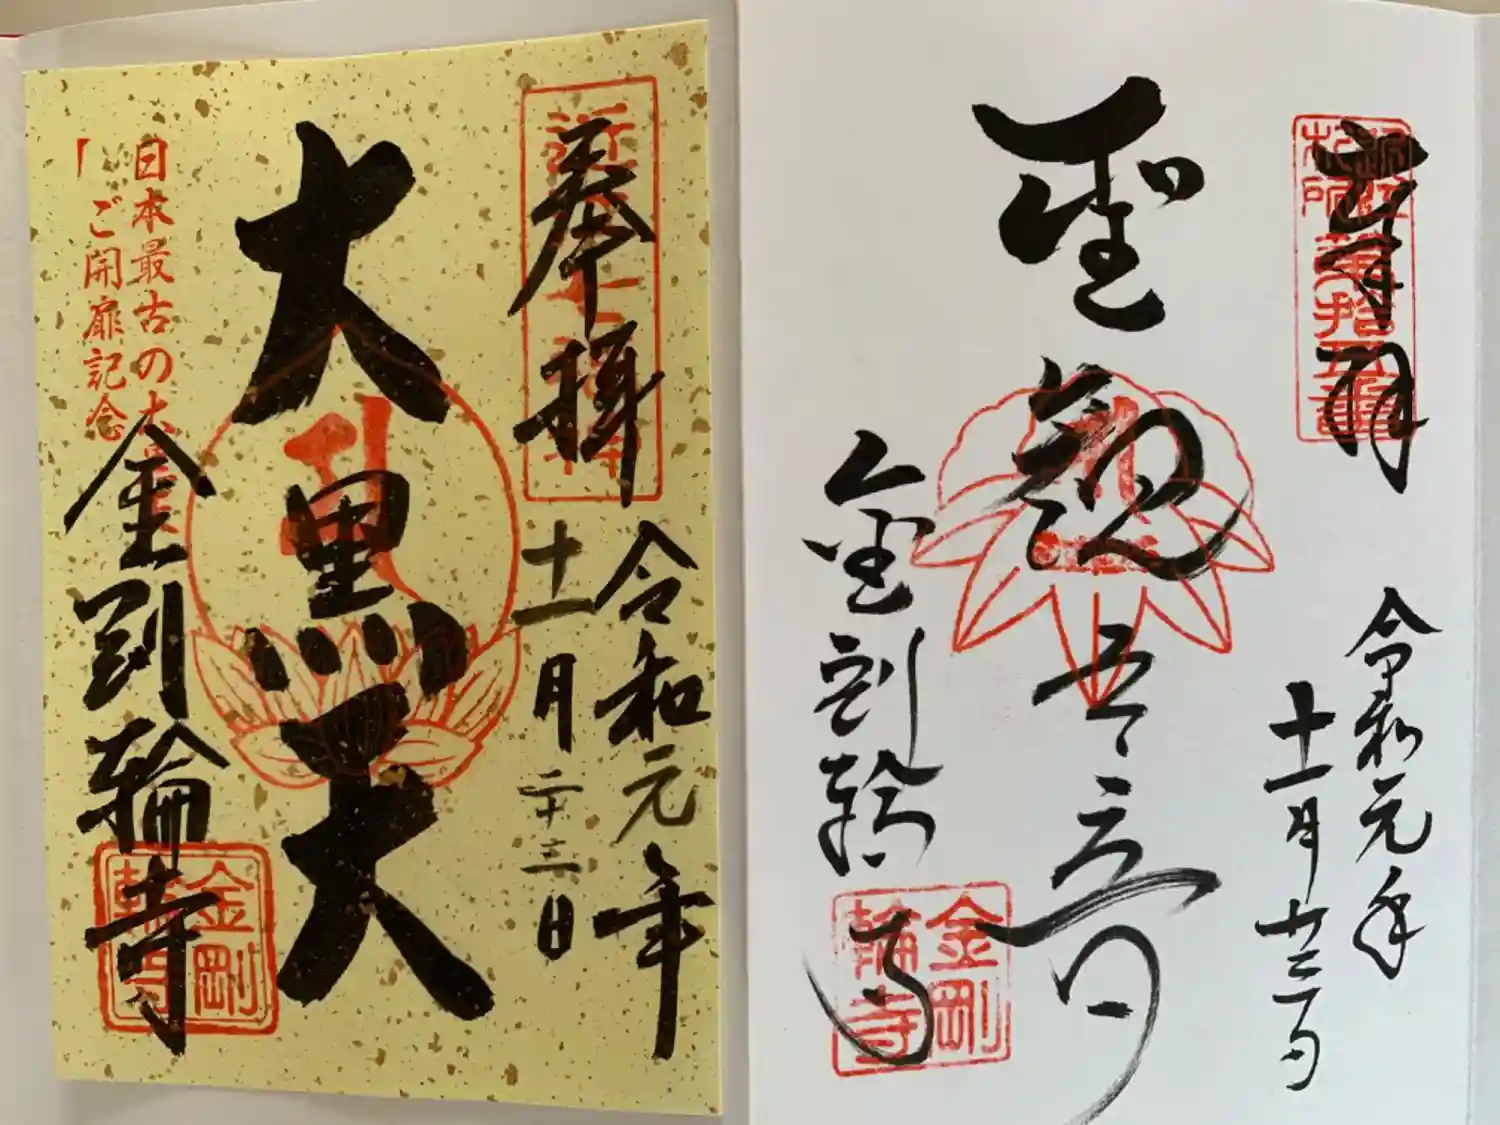 奉拝
令和元年
十一月二十三日
大黒天
日本最古の大
「ご開扉記念
金剛輪寺
金剛
輪寺
奉拝
拾五番
札所
令和元年
十一月廿三日
聖観
金剛輪寺
金剛
輪寺